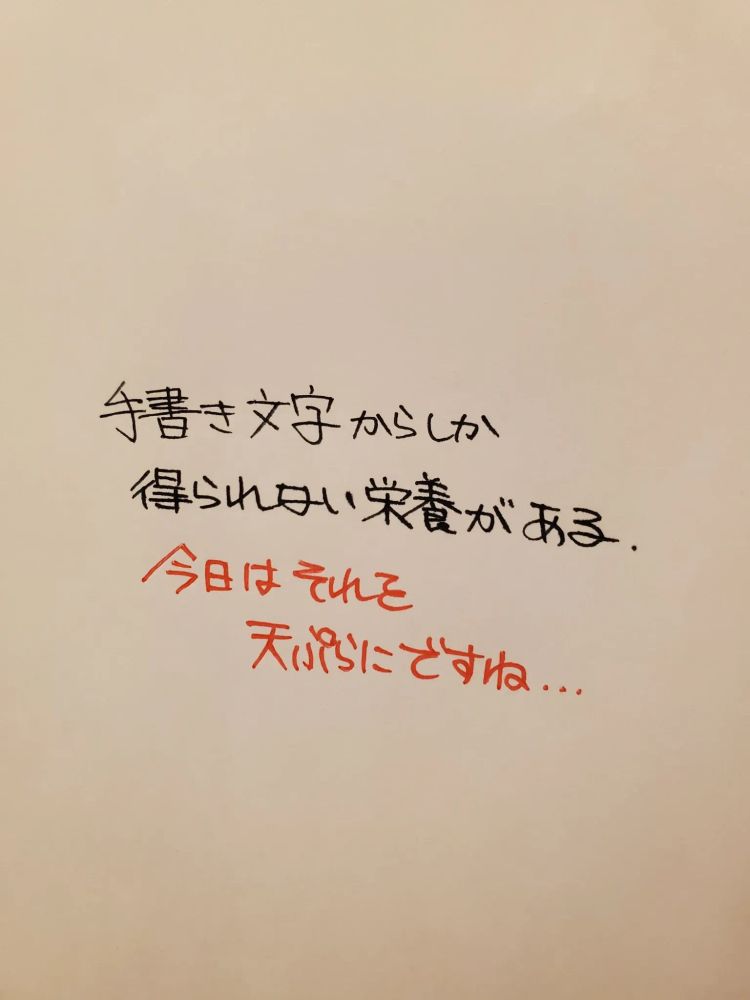 手書き文字からしか
得られない栄養がある.
今日はそれを
天ぷらにですね...